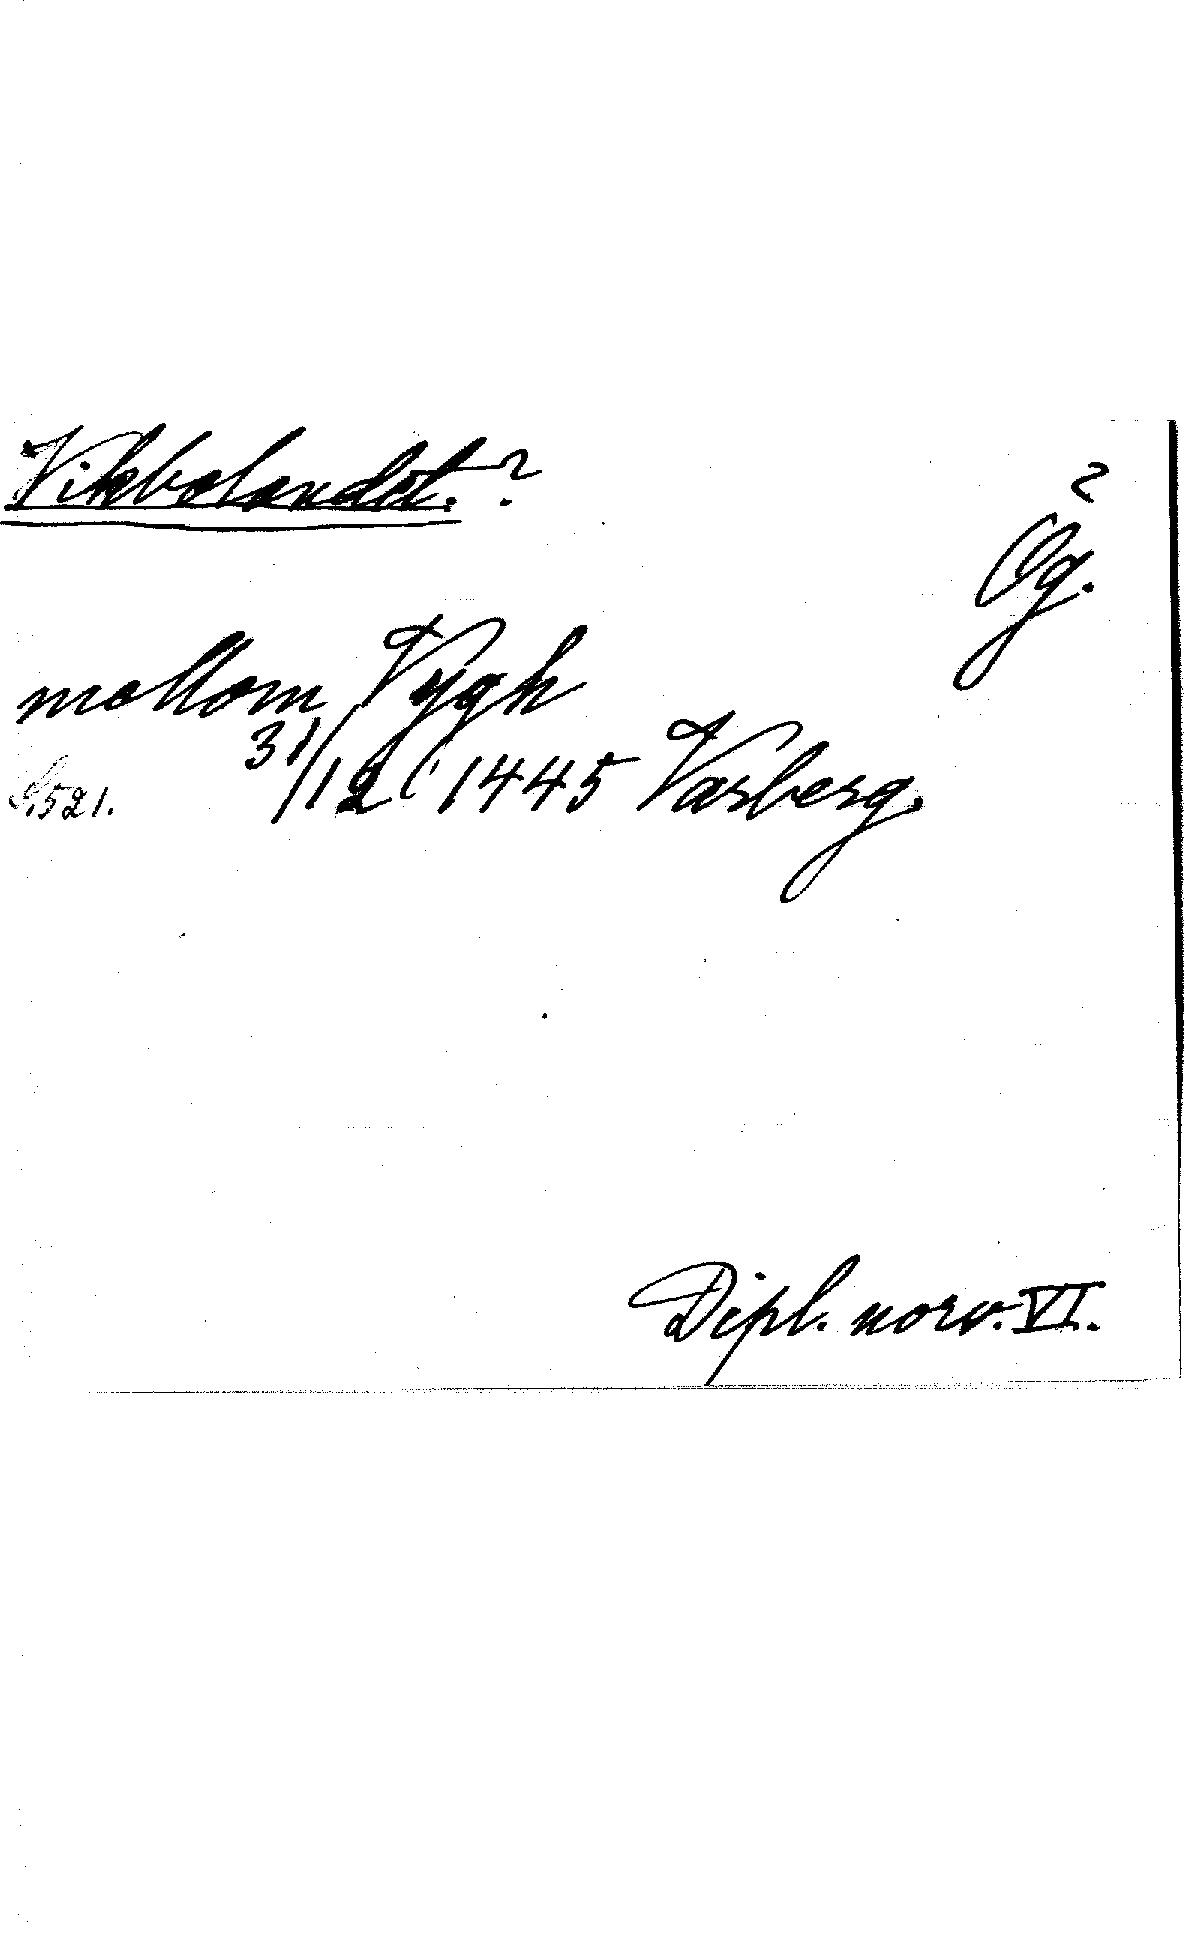 Vikbolandet.?
?
Ög.
mellom Vygh
S. 521. 31/12 1445 Varberg.
Dipl. norv. VI.